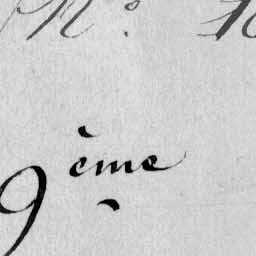 N°. 10
9ème